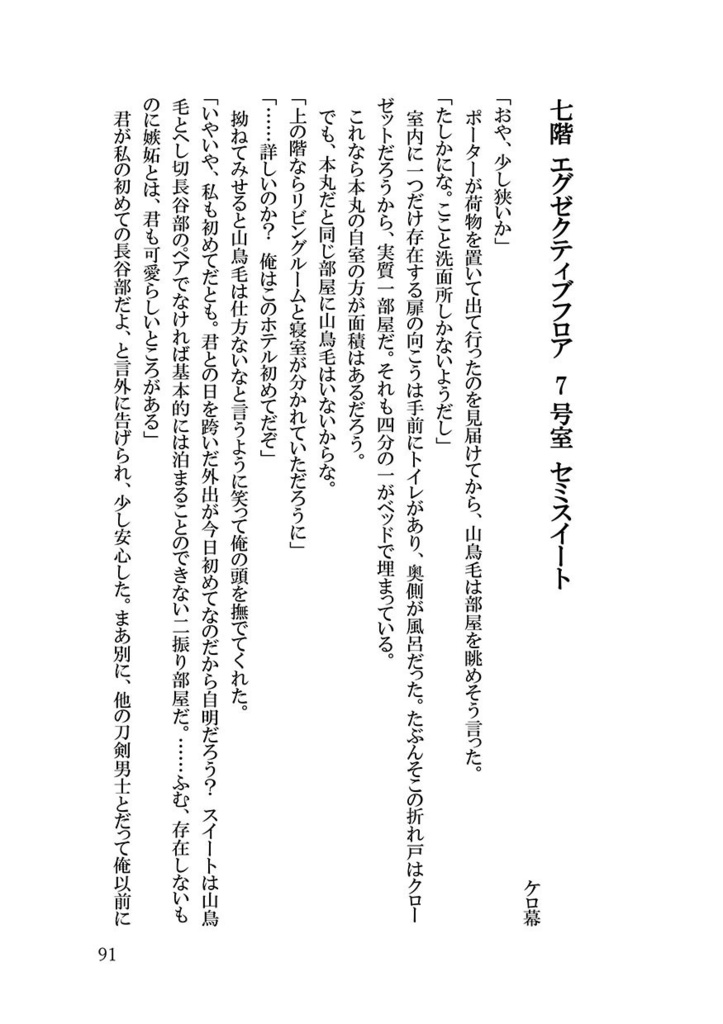 七階 エグゼクティブフロア 7号室 セミスイート
ケロ幕
「おや、少し狭いか」
ポーターが荷物を置いて出て行ったのを見届けてから、山鳥毛は部屋を眺めそう言った。
「たしかにな。ここと洗面所しかないようだし」
室内に一つだけ存在する扉の向こうは手前にトイレがあり、奥側が風呂だった。たぶんそこの折れ戸はクロー
ゼットだろうから、実質一部屋だ。それも四分の一がベッドで埋まっている。
これなら本丸の自室の方が面積はあるだろう。
でも、本丸だと同じ部屋に山鳥毛はいないからな。
「上の階ならリビングルームと寝室が分かれていただろうに」
「……詳しいのか？ 俺はこのホテル初めてだぞ」
拗ねてみせると山鳥毛は仕方ないなと言うように笑って俺の頭を撫でてくれた。
「いやいや、私も初めてだとも。君との日を跨いだ外出が今日初めてなのだから自明だろう？ スイートは山鳥
毛とへし切長谷部のペアでなければ基本的には泊まることのできない二振り部屋だ。……ふむ、存在しないも
のに嫉妬とは、君も可愛らしいところがある」
君が私の初めての長谷部だよ、と言外に告げられ、少し安心した。まあ別に、他の刀剣男士とだって俺以前に
91